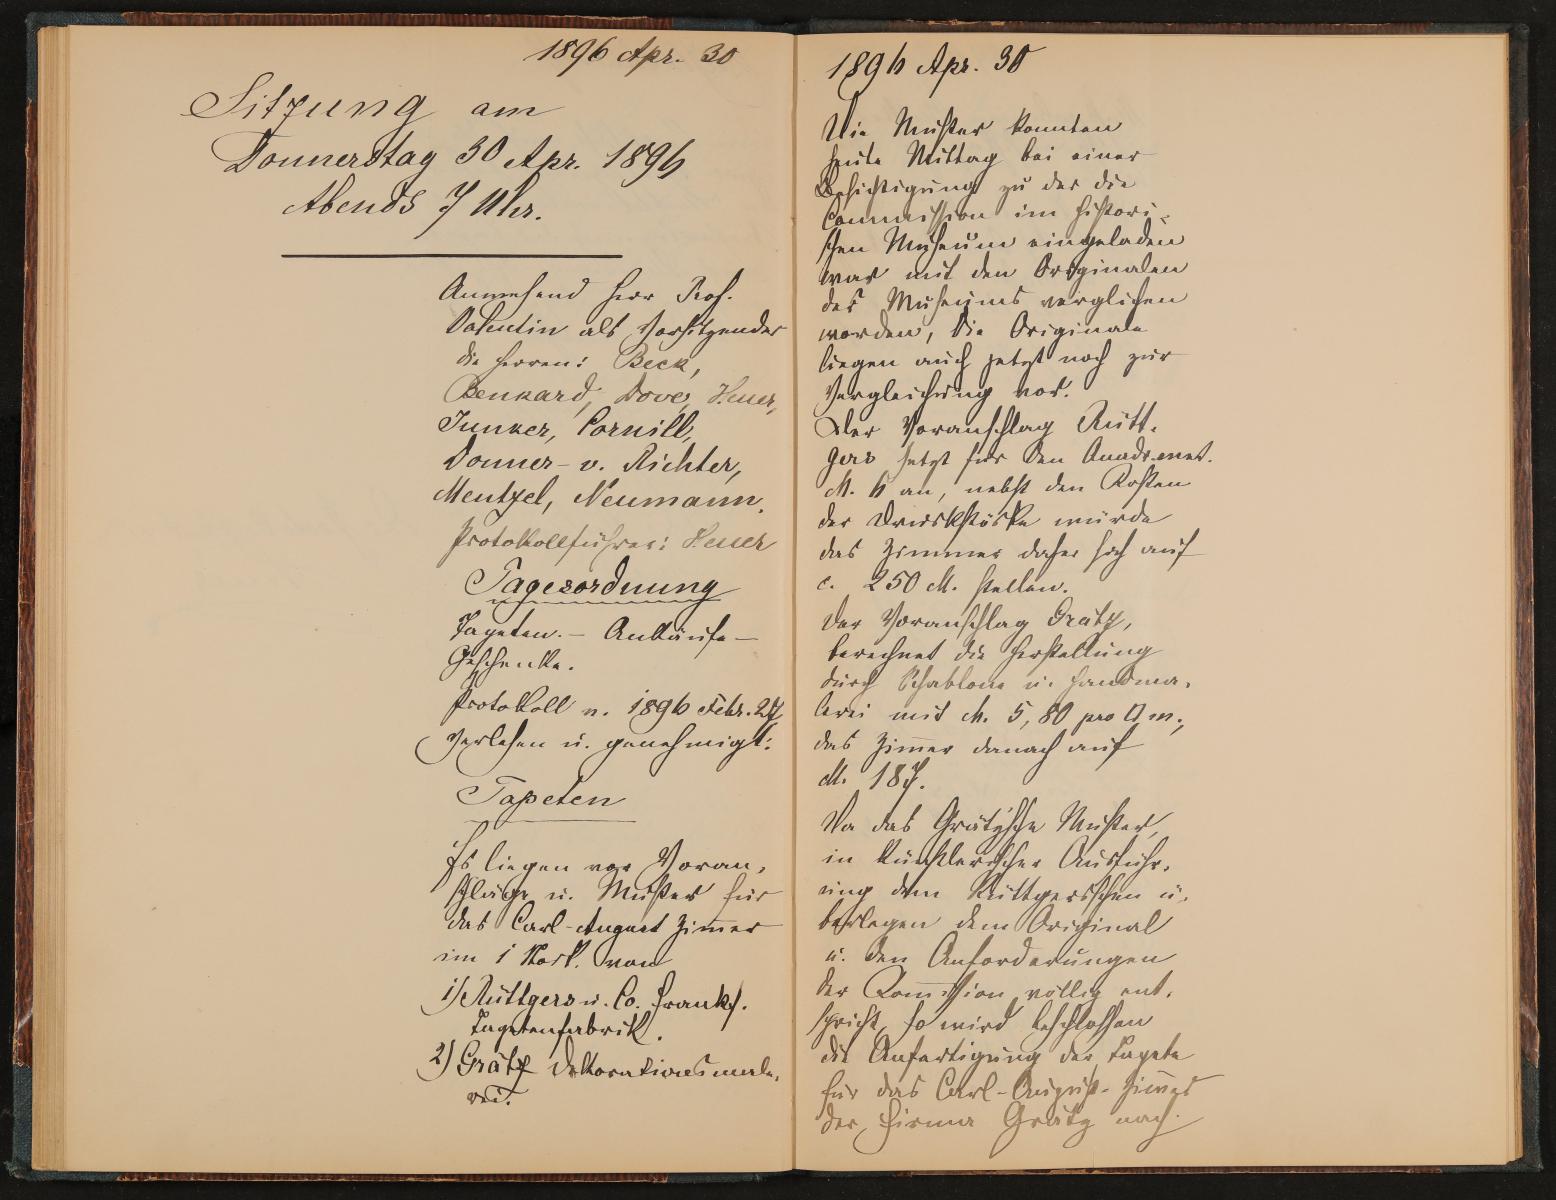 1896 Apr. 30
Sitzung am
Donnerstag 30 Apr. 1896
Abends 7 Uhr.
Anwesend Herr Prof.
Valentin als Vorsitzender
die Herren: Beck,
Benkard, Dove, Heuer,
Junker, Cornill,
Donner - v. Richter,
Mentzel, Neumann.
Protokollführer: Heuer
Tagesordnung
Tapeten. - Ankäufe -
Geschenke.
Protokoll v. 1896 Febr. 27
Verlesen u. genehmigt:
Tapeten
Es liegen vor Voran-
schläge u. Muster für
das Carl-August Zimer
im 1 Stock. von
1) Rüttgers u. Co. Frankf.
Tapetenfabrik.
2) Grätz Dekorationsmale-
rei.
1896 Apr. 30
Die Muster konnten
heute Mittag bei einer
Besichtigung zu der die
Commission im histori-
schen Museum eingeladen
war mit den Originalen
des Museums verglichen
worden, die Originale
liegen auch jetzt noch zur
Vergleichung vor.
Der Voranschlag Rütt-
gers setzt für den Quadr.met.
M. 6 an, nebst den Kosten
der Druckstöcke würde
das Zimmer daher sich auf
c. 250 M. stellen.
Der Voranschlag Grätz,
berechnet die Herstellung
durch Schablone u. Handma-
lerei mit M. 5,80 pro □ m.,
das Zimer danach auf
M. 187.
Da das Grätz'sche Muster,
in künstlerischer Ausführ-
ung dem Rüttgersschen ü-
berlegen dem Original
u. den Anforderungen
der Comission völlig ent-
spricht, so wird beschlossen
die Anfertigung der Tapete
für das Carl-August-Zimer
der Firma Grätz nach